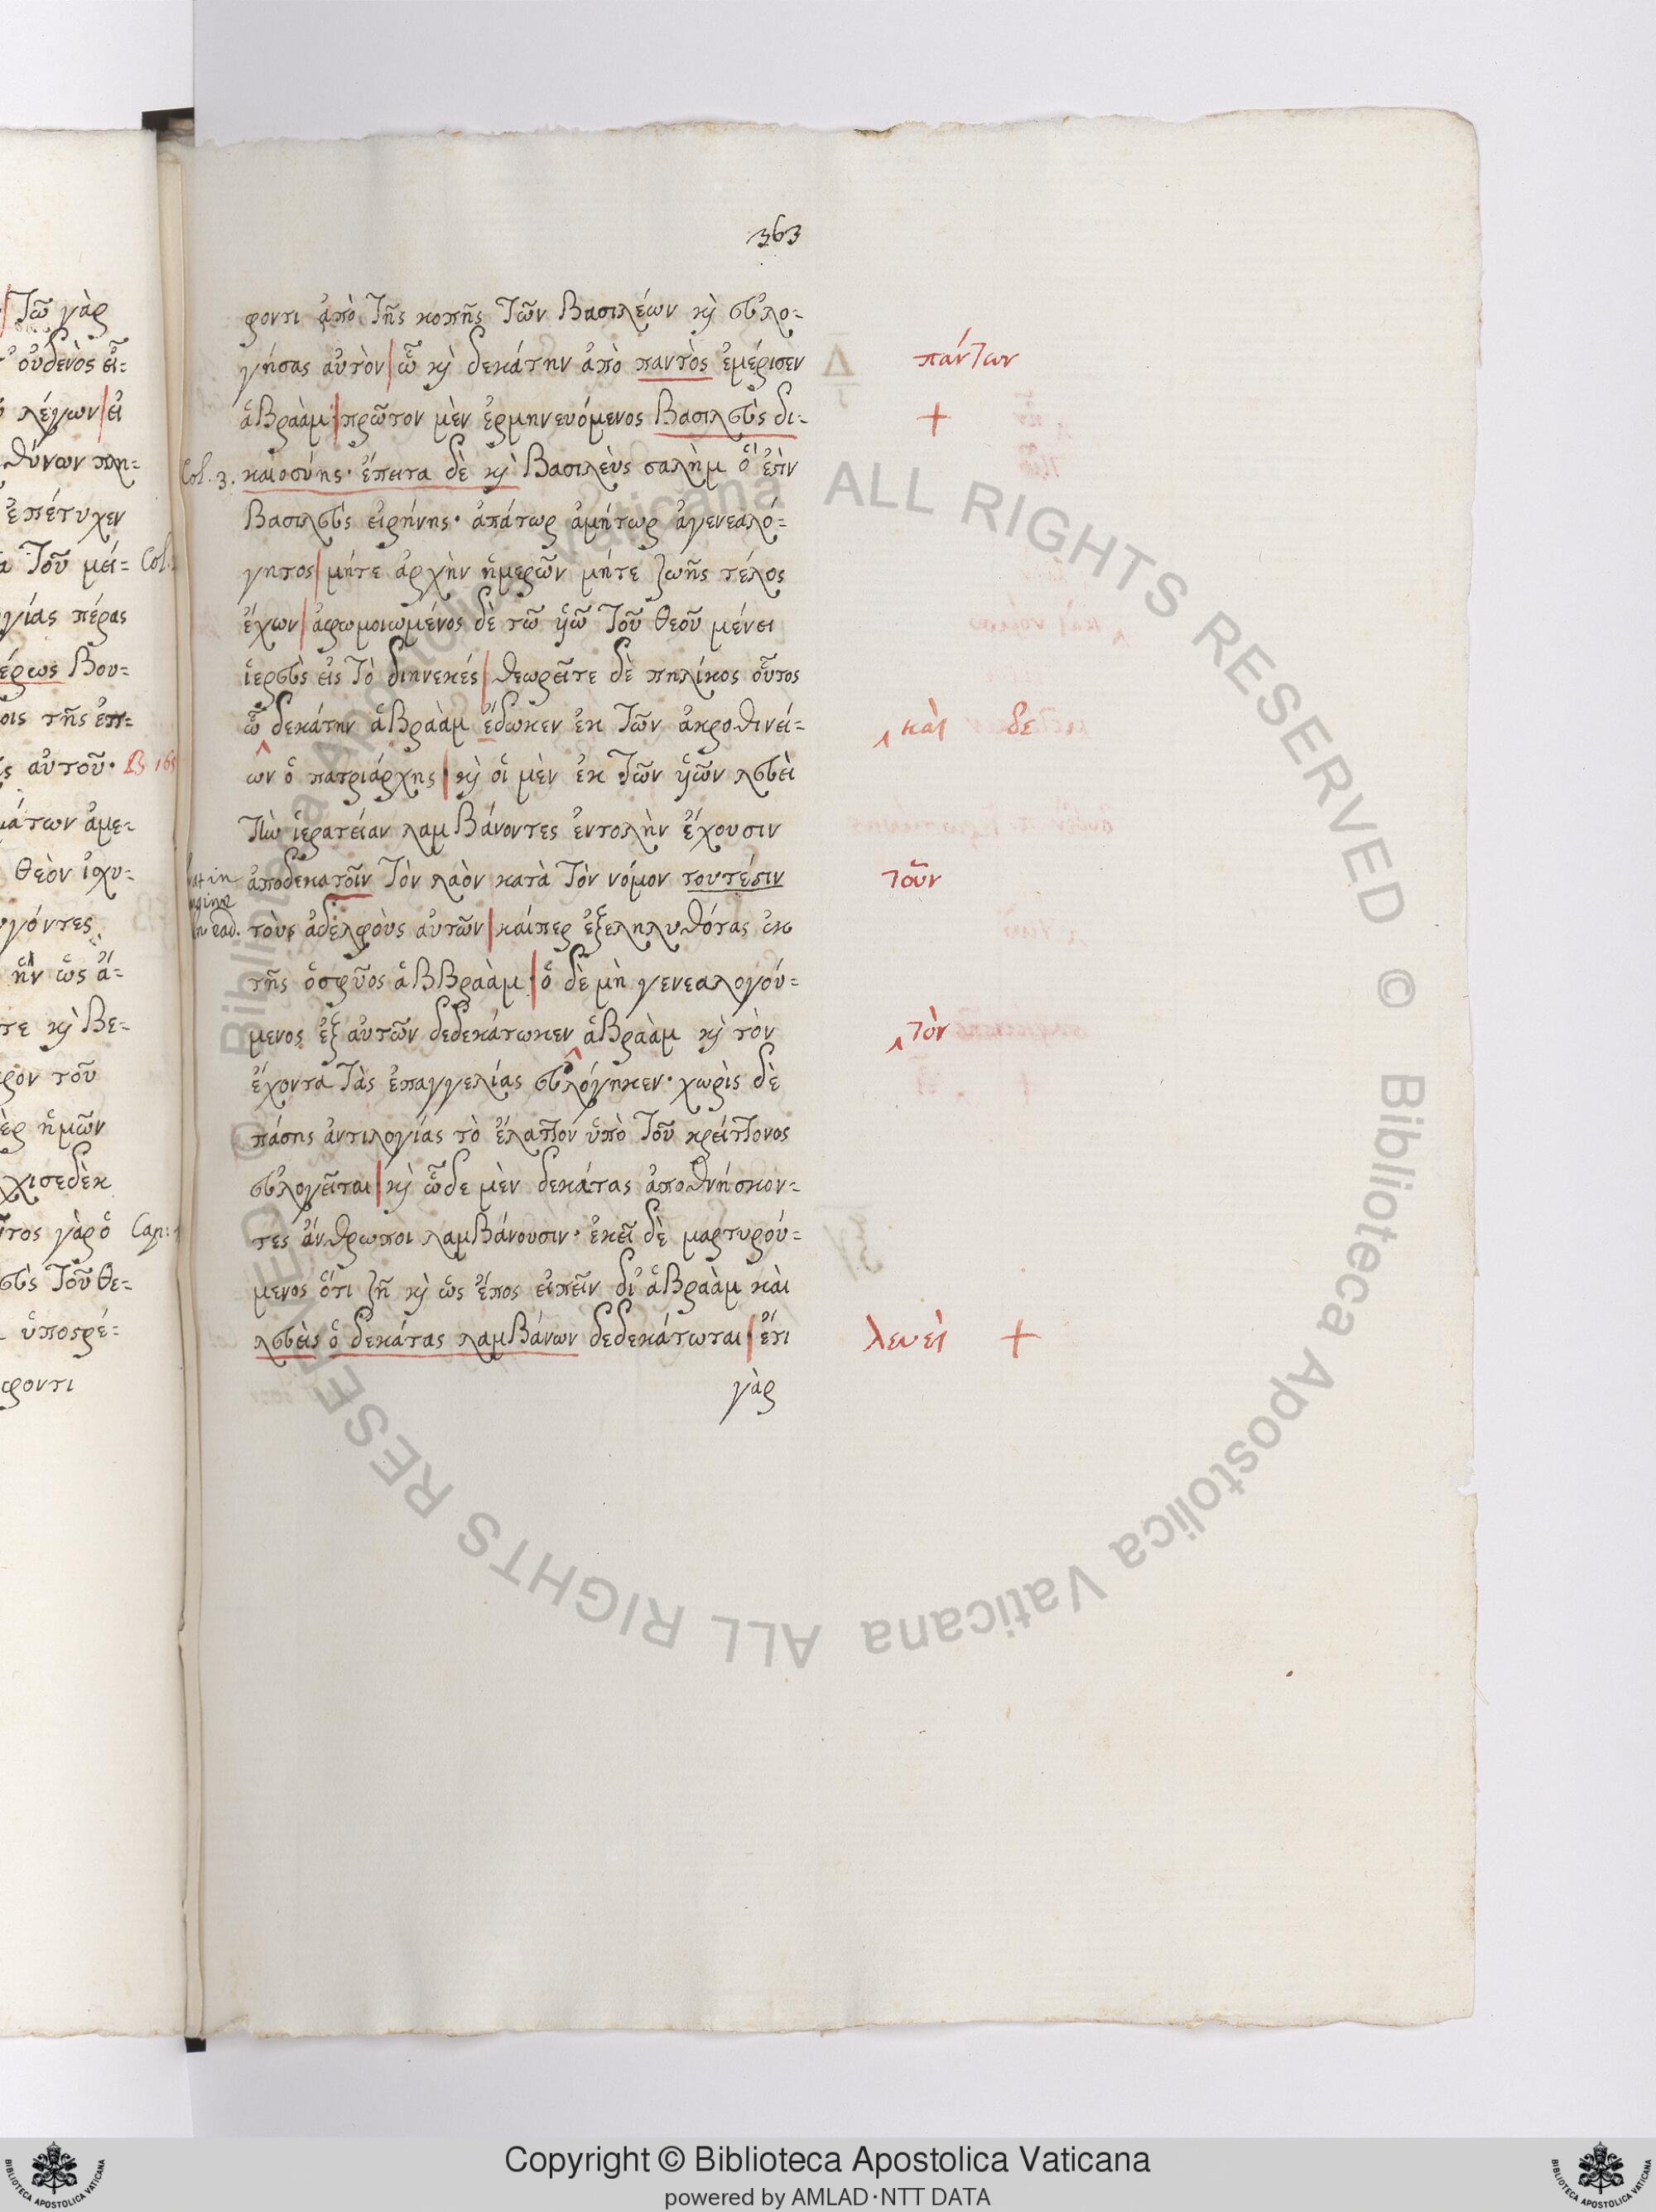 363
φοντι ἀπὸ τῆς κοπῆς τῶν βασιλέων κὶ εὐλο-
γήσας αὐτὸν | ὧ κὶ δεκάτην ἀπὸ παντὸς ἐμέρισεν πάντων
ἀβραὰμ | πρῶτον μὲν ἑρμηνευόμενος βασιλεὺς δι- +
Col. 3. καιοσύνης· ἔπειτα δὲ κὶ βασιλεὺς σαλὴμ ὅ ἐϛὶν
βασιλεὺς εἰρήνης· ἀπάτωρ ἀμήτωρ ἀγενεαλό-
γητος | μήτε ἀρχὴν ἡμερῶν μήτε ζωῆς τέλος
ἔχων | ἀφωμοιωμένος δὲ τῶ ὑῶ τοῦ θεοῦ μένει
ἱερεὺς εἰς τὸ διηνεκές | θεωρεῖτε δὲ πηλίκος οὗτος
ὧ δεκάτην ἀβραὰμ ἔδωκεν ἐκ τῶν ἀκροθινεί- ‸ καὶ δε
ων ὁ πατριάρχης | κὶ οἱ μὲν ἐκ τῶν ὑῶν λευεὶ
τὴν ἱερατείαν λαμβάνοντες ἐντολὴν ἔχουσιν
ἀποδεκατοῖν τὸν λαὸν κατὰ τὸν νόμον τουτέϛιν τοῦν
τοὺς ἀδελφοὺς αὐτῶν | καίπερ ἐξεληλυθότας ἐκ
τῆς ὀσφῦος ἀββραὰμ | ὁ δὲ μὴ γενεαλογού-
μενος ἐξ αὐτῶν δεδεκάτωκεν ἀβραὰμ κὶ τὸν ‸ τὸν
ἔχοντα τὰς ἐπαγγελίας εὐλόγηκεν· χωρὶς δὲ
πάσης ἀντιλογίας τὸ ἔλαττον ὑπὸ τοῦ κρείττονος
εὐλογεῖται | κὶ ὧδε μὲν δεκάτας ἀποθνήσκον-
τες ἄνθρωποι λαμβάνουσιν· ἐκεῖ δὲ μαρτυρού-
μενος ὅτι ζῆ κὶ ὡς ἔπος εἰπεῖν δι' ἀβραὰμ καὶ
λευεὶς ὁ δεκάτας λαμβάνων δεδεκάτωται | ἔτι λευεὶ +
γὰρ
Copyright © Biblioteca Apostolica Vaticana
powered by AMLAD·NTT DATA